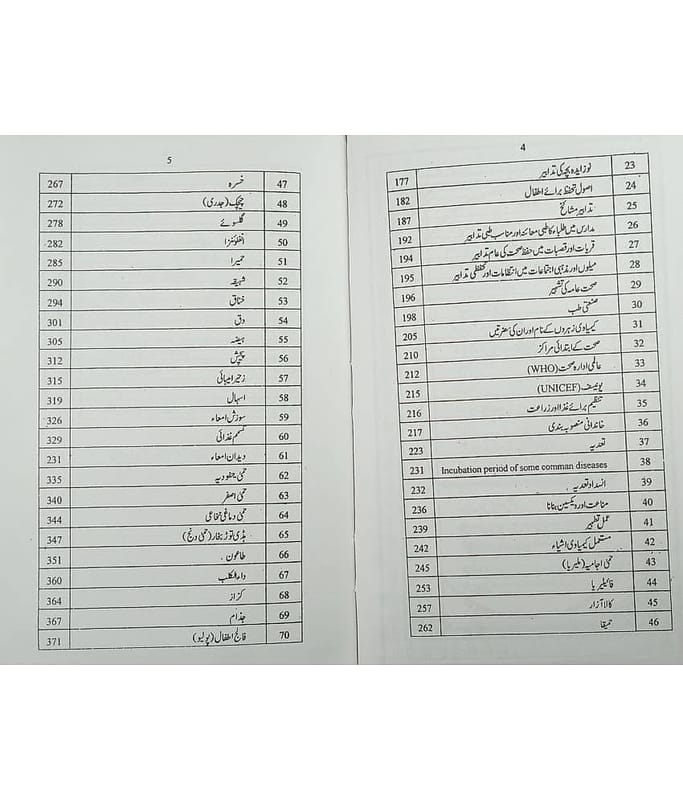 4
23 نوزائیدہ بچہ کی تدابیر 177
24 اصول تحفظ برائے اطفال 182
25 تدابیر مشائخ 187
26 مدارس میں طلباء کا طبی معائنہ اور مناسب طبی تدابیر 192
27 قریات اور قصبات میں حفظ صحت کی عام تدابیر 194
28 میلوں اور مذہبی اجتماعات میں انتظامات اور تحفظی تدابیر 195
29 صحت عامہ کی تشہیر 196
30 صنعتی طب 198
31 کیمیاوی زہروں کے نام اور ان کی مضرتیں 205
32 صحت کے ابتدائی مراکز 210
33 عالمی ادارہ صحت (WHO) 212
34 یونیسف (UNICEF) 215
35 تنظیم برائے غذا اور زراعت 216
36 خاندانی منصوبہ بندی 217
37 تعدیہ 223
38 Incubation period of some comman diseases 231
39 انسداد تعدیہ 232
40 مناعت اور ویکسین بنانا 236
41 عمل تطہیر 239
42 مستعمل کیمیاوی اشیاء 242
43 حمیٰ اجامیہ (ملیریا) 245
44 فائیلیریا 253
45 کالا آزار 257
46 حمیقا 262
5
47 خسرہ 267
48 چیچک (جدری) 272
49 گلسوئے 278
50 انفلوئنزا 282
51 حمیرا 285
52 شہیقہ 290
53 خناق 294
54 دق 301
55 ہیضہ 305
56 پیچش 312
57 زحیر امیبائی 315
58 اسہال 319
59 سوزش امعاء 326
60 تسمم غذائی 329
61 دیدان امعاء 231
62 حمیٰ تیفودیہ 335
63 حمیٰ اصفر 340
64 حمیٰ دماغی نخاعی 344
65 ہڈی توڑ بخار (حمیٰ دنج) 347
66 طاعون 351
67 داء الکلب 360
68 کزاز 364
69 جذام 367
70 فالج اطفال (پولیو) 371